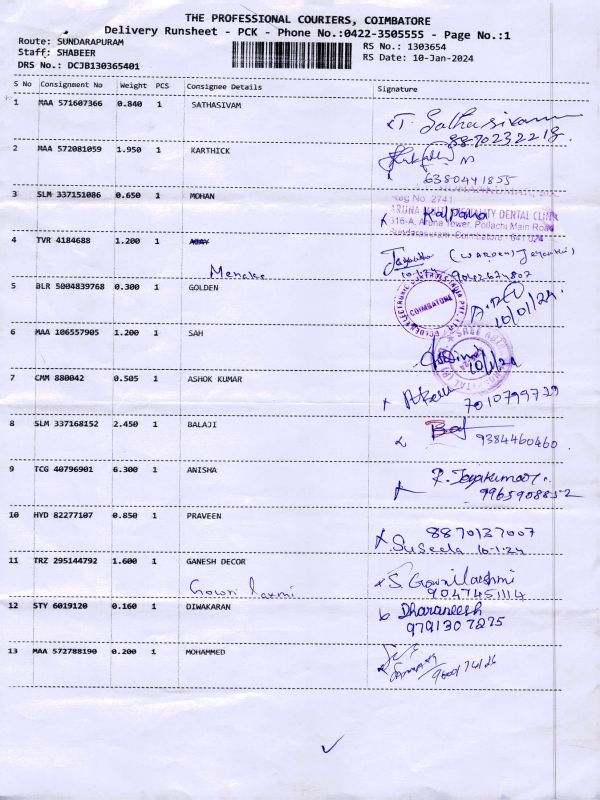 THE PROFESSIONAL COURIERS, COIMBATORE
Delivery Runsheet - PCK - Phone No.:0422-3505555 - Page No.:1
Route: SUNDARAPURAM
Staff: SHABEER
DRS No.: DCJB130365401
RS No.: 1303654
RS Date: 10-Jan-2024
S No Consignment No Weight PCS Consignee Details Signature
1 MAA 571607366 0.840 1 SATHASIVAM
T. Sathasivam
8870232218
2 MAA 572081059 1.950 1 KARTHICK
6380441855
3 SLM 337151086 0.650 1 MOHAN
Reg No. 2741
Kalpana
ARUNA MULTI SPECIALITY DENTAL CLINIC
316-A, Aruna Tower, Pollachi Main Road
Sundarapuram, Coimbatore - 641 024
4 TVR 4184688 1.200 1
Menaka
(WARDEN)
5 BLR 5004839768 0.300 1 GOLDEN
COIMBATORE
10/01/24
6 MAA 106557905 1.200 1 SAH
10/1/24
7 CMM 880042 0.505 1 ASHOK KUMAR
7010799729
8 SLM 337168152 2.450 1 BALAJI
9384460460
9 TCG 40796901 6.300 1 ANISHA
R. Jayakumar
9965908852
10 HYD 82277107 0.850 1 PRAVEEN
8870137007
Suseela 10.1.24
11 TRZ 295144792 1.600 1 GANESH DECOR
Gowri laxmi
S. Gowrilakshmi
9047451114
12 STY 6019120 0.160 1 DIWAKARAN
Dharaneesh
9791307275
13 MAA 572788190 0.200 1 MOHAMMED